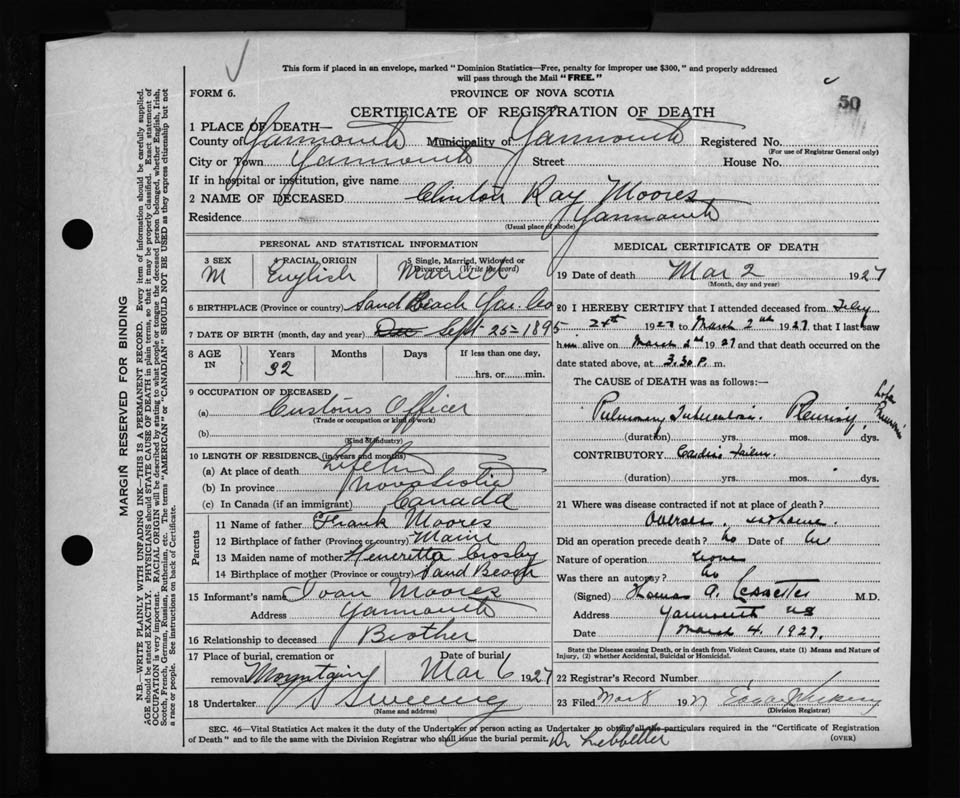 This form if placed in an envelope, marked "Dominion Statistics—Free, penalty for improper use $300," and properly addressed
will pass through the Mail "FREE."
FORM 6. PROVINCE OF NOVA SCOTIA 50
CERTIFICATE OF REGISTRATION OF DEATH
1 PLACE OF DEATH—
County of Yarmouth Municipality of Yarmouth Registered No.
(For use of Registrar General only)
City or Town Yarmouth Street House No.
If in hospital or institution, give name
2 NAME OF DECEASED Clinton Ray Moores
Residence Yarmouth
(Usual place of abode)
PERSONAL AND STATISTICAL INFORMATION
3 SEX 4 RACIAL ORIGIN 5 Single, Married, Widowed or Divorced (Write the word)
M English Married
6 BIRTHPLACE (Province or country) Sand Beach Yar. Co
7 DATE OF BIRTH (month, day and year) Dec Sept 25 = 1895
8 AGE IN Years Months Days If less than one day,
32 hrs. or min.
9 OCCUPATION OF DECEASED
(a) Customs Officer
(Trade or occupation or kind of work)
(b)
(Kind of industry)
10 LENGTH OF RESIDENCE (in years and months)
(a) At place of death Lifetime
(b) In province Nova Scotia
(c) In Canada (if an immigrant) Canada
Parents
11 Name of father Frank Moores
12 Birthplace of father (Province or country) Maine
13 Maiden name of mother Henrietta Crosby
14 Birthplace of mother (Province or country) Sand Beach
15 Informant's name Ivan Moores
Address Yarmouth
16 Relationship to deceased Brother
17 Place of burial, cremation or removal Mountain Date of burial Mar 6 1927
18 Undertaker Sweeny
(Name and address)
MEDICAL CERTIFICATE OF DEATH
19 Date of death Mar 2 1927
(Month, day and year)
20 I HEREBY CERTIFY that I attended deceased from
24th 1927 to March 2nd 1927 that I last saw
him alive on March 2nd 1927 and that death occurred on the
date stated above, at 3.30 P. m.
The CAUSE OF DEATH was as follows:—
Pulmonary Pleurisy,
(duration) yrs. mos. dys.
CONTRIBUTORY Cardiac
(duration) yrs. mos. dys.
21 Where was disease contracted if not at place of death?
Overseas
Did an operation precede death? No Date of
Nature of operation none
Was there an autopsy? No
(Signed) Thomas A. M.D.
Address Yarmouth NS
Date March 4. 1927.
State the Disease causing Death, or in death from Violent Causes, state (1) Means and Nature of
Injury, (2) whether Accidental, Suicidal or Homicidal.
22 Registrar's Record Number
23 Filed Mar 8 1927
(Division Registrar)
SEC. 46—Vital Statistics Act makes it the duty of the Undertaker or person acting as Undertaker to obtain all the particulars required in the "Certificate of Registration
of Death" and to file the same with the Division Registrar who shall issue the burial permit. (OVER)
Dr Lebbetter
MARGIN RESERVED FOR BINDING
N.B.—WRITE PLAINLY WITH UNFADING INK—THIS IS A PERMANENT RECORD. Every item of information should be carefully supplied.
AGE should be stated EXACTLY. PHYSICIANS should STATE CAUSE OF DEATH in plain terms, so that it may be properly classified. Exact statement of
OCCUPATION is very important. RACIAL ORIGIN will be described by stating to what people or tongue the deceased person belonged, whether English, Irish,
Scotch, French, German, Russian, Ruthenian, etc. The terms "AMERICAN" or "CANADIAN" SHOULD NOT BE USED as they express citizenship but not
a race or people. See instructions on back of Certificate.